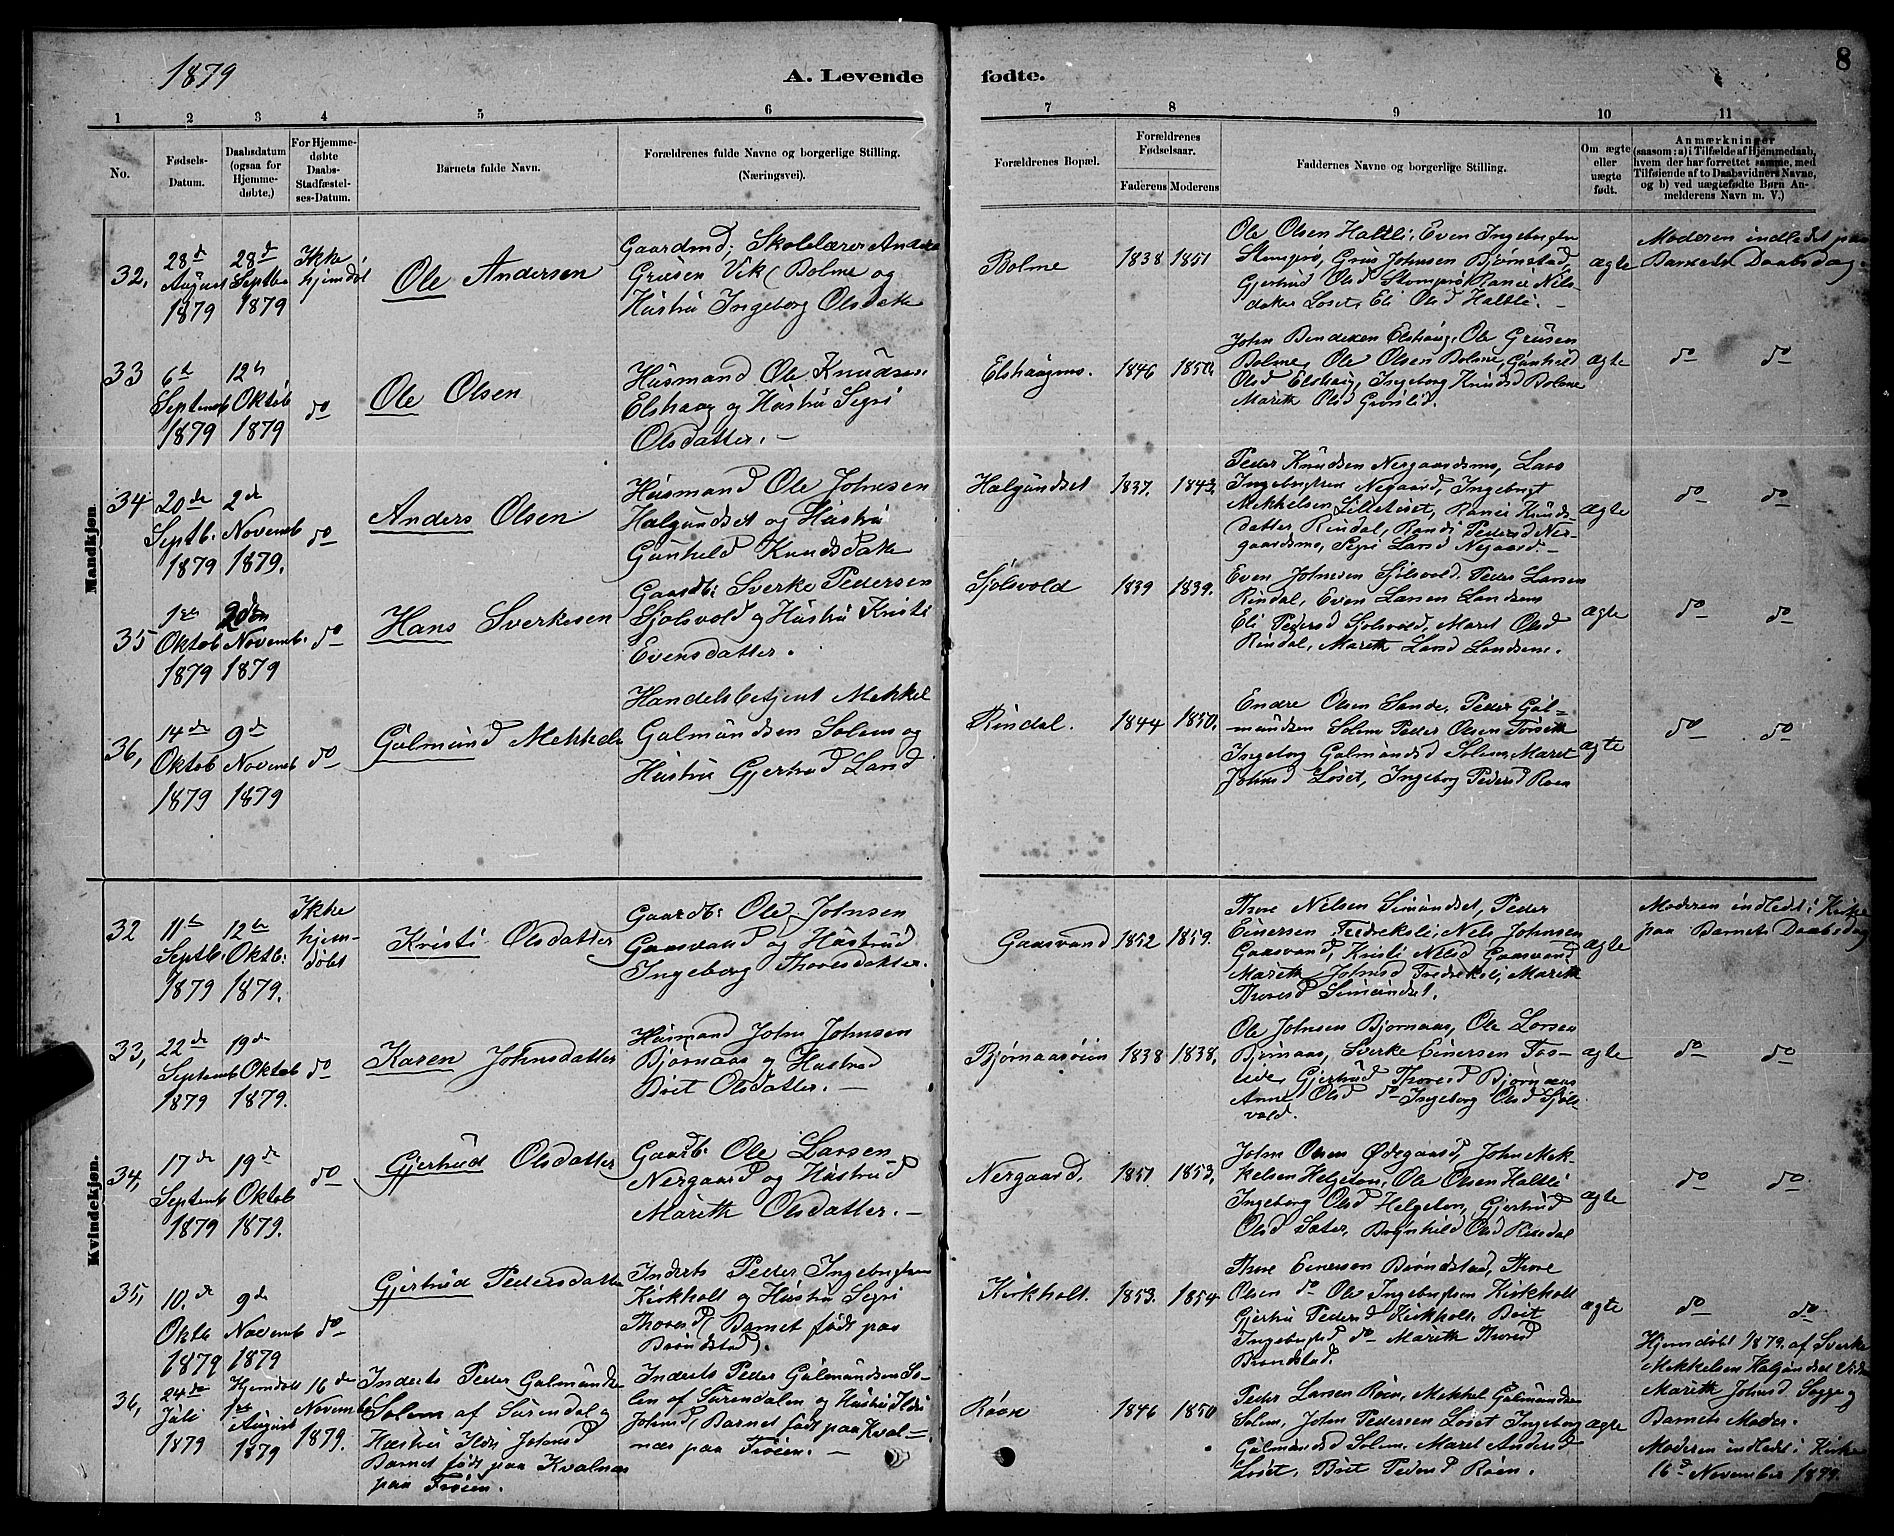 1879
A. Levende fødte.
8
1 2 3 4 5 6 7 8 9 10 11
No.
Fødsels-Datum.
Daabsdatum (ogsaa for Hjemme-døbte.)
For Hjemme-døbte Daabs-Stadfæstel-ses-Datum.
Barnets fulde Navn.
Forældrenes fulde Navne og borgerlige Stilling.
(Næringsvei).
Forældrenes Bopæl.
Forældrenes Fødselsaar.
Faderens Moderens
Faddernes Navne og borgerlige Stilling.
Om ægte eller uægte født.
Anmærkninger
(saasom: a) i Tilfælde af Hjemmedaab,
hvem der har forrettet samme, med
Tilføiende af to Daabsvidners Navne,
og b) ved uægtefødte Børn An-
melderens Navn m. V.)
Mandkjøn.
32,
28de August 1879
28de Septbr 1879
Ikke hjemdøbt
Ole Andersen
Gaardmd; Skolelærer Anders
Gruesen Vik (Bolme og
Hustru Ingeborg Olsdatter
Bolme
1838 1851
Ole Olsen Haltli, Even Ingebrigtsen
Stomprø, Grus Johnsen Bjørnstad,
Gjertrud Olsd Stomprø, Ranei Nils-
datter Løset, Eli Olsd Haltli.
ægte
Moderen indledet paa
Barnets Daabsdag.
33
6te Septemb 1879
12te Oktob 1879
do
Ole Olsen
Husmand Ole Knudsen
Elshaug og Hustru Segri
Olsdatter.
Elshaugms.
1846 1850.
John Bendixen Elshaug, Ole Gruesen
Bolme, Ole Olsen Bolme, Gunhild
Olsd Elshaug, Ingeborg Knudsd Bolme
Marith Olsd Grønlid.
ægte
do do
34
20de Septb. 1879
2de Novemb 1879.
do
Anders Olsen
Husmand Ole Johnsen
Halgundset og Hustru
Gunhild Knudsdatter
Halgundset
1837. 1843.
Peder Knudsen Nergaardsms, Lars
Ingebrigtsen Negaard, Ingebrigt
Mekkelsen Lilleløset, Ranei Knuds-
datter Rindal, Randi Pedersd Ner-
gaardsms, Segri Larsd Negaard
ægte
do do
35
1ste Oktob 1879
2den Novemb. 1879
do
Hans Sverkesen
Gaardb: Sverke Pedersen
Sjølsvold og Hustru Kristi
Evensdatter.
Sjølsvold
1839 1839.
Even Johnsen Sjølsvold, Peder Larsen
Rindal, Even Larsen Landsem
Eli Pedersd Sjølsvold, Maret Olsd
Rindal, Marith Larsd Landsem.
ægte
do do
36,
14de Oktob 1879
9de Novemb 1879
do
Gulmund Mekkels
Handelsbetjent Mekkel
Galmundsen Solem og
Hustru Gjertrud Larsd
Rindal.
1844 1850.
Endre Olsen Sande, Peder Gul-
mundsen Solem Peder Olsen Torseth
Ingeborg Galmundsd Solem, Maret
Johnsd Løset, Ingeborg Pedersd Røen
ægte
do do
Kvindekjøn.
32
11te Septb. 1879
12te Oktb: 1879.
Ikke hjem-døbt
Kristi Olsdatter
Gaardb: Ole Johnsen
Gaasvand og Hustrud
Ingeborg Thoresdatter.
Gaasvand
1852 1859.
Thore Nilsen Simundset, Peder
Einersen Fredrekeli, Nels Johnsen
Gaasvand, Kristi Nelsd Gaasvand
Marith Johnsd Fredrekeli, Marith
Thoresd Simundset.
ægte
Moderen indledet i Kirke
paa Barnets Daabsdag
33,
22de Septemb 1879
19de Oktob 1879.
do
Karen Johnsdatter
Husmand John Johnsen
Bjørnaas og Hustrud
Brit Olsdatter.
Bjørnaasøien
1838 1838,
Ole Johnsen Bjørnaas, Ole Larsen
Bjørnaas, Sverke Einersen Tos-
eide, Gjertrud Thoresd Bjørnaas
Anne Olsd do Ingeborg Olsd Sjøls-
vold.
ægte
do do
34,
17de Septemb 1879
19de Oktob 1879.
do
Gjertrud Olsdatter
Gaardb: Ole Larsen
Nergaard og Hustrud
Marith Olsdatter.
Nergaard.
1851 1853.
John Olsen Ødegaard, John Mek-
kelsen Helgeton, Ole Olsen Haltli
Ingeborg Olsd Helgeton, Gjertrud
Olsd Sæter, Brynhild Olsd Rindal
ægte
do do
35,
10.de Oktb 1879
9de Novemb 1879
do
Gjertrud Pedersdatter
Inderts Peder Ingebrigtsen
Kirkholt og Hustru Segri
Thoresd (Barnet født paa
Brøndstad).
Kirkholt.
1853. 1854
Thore Einersen Brøndstad, Thore
Olsen do Ole Ingebrigtsen Kirkholt
Gjertru Pedersd Kirkholt, Brit
Ingebrigtsd do Marith Thoresd
Brøndstad.
ægte
do do
36,
24de Juli 1879
Hjemdøbt 1ste August 1879
16de Novemb 1879.
Inderts Peder Galmundsen
Solem af Surendal og
Hustru Ildri Johnsd
Barnet født paa Kvalnes
paa Frøien.
Inderts Peder Gulmundsen So-
lem af Surendalen og Hustru Ildri
Johnsd, (Barnet født paa Kval-
næs paa Frøien.
Røen
1846 1850
Peder Larsen Røen, Mekkel Gulmundsen
Solem, John Pedersen Løset Ingeborg
Gulmundsd Solem, Maret Andersd
Løset, Brit Pedersd Røen.
ægte
Hjemdøbt 1879. af Sverke
Mekkelsen Halgundset Vidne
Marith Johnsd Sogge og
Barnets Moder.
Moderen indledet i Kirke
16de November 1879.